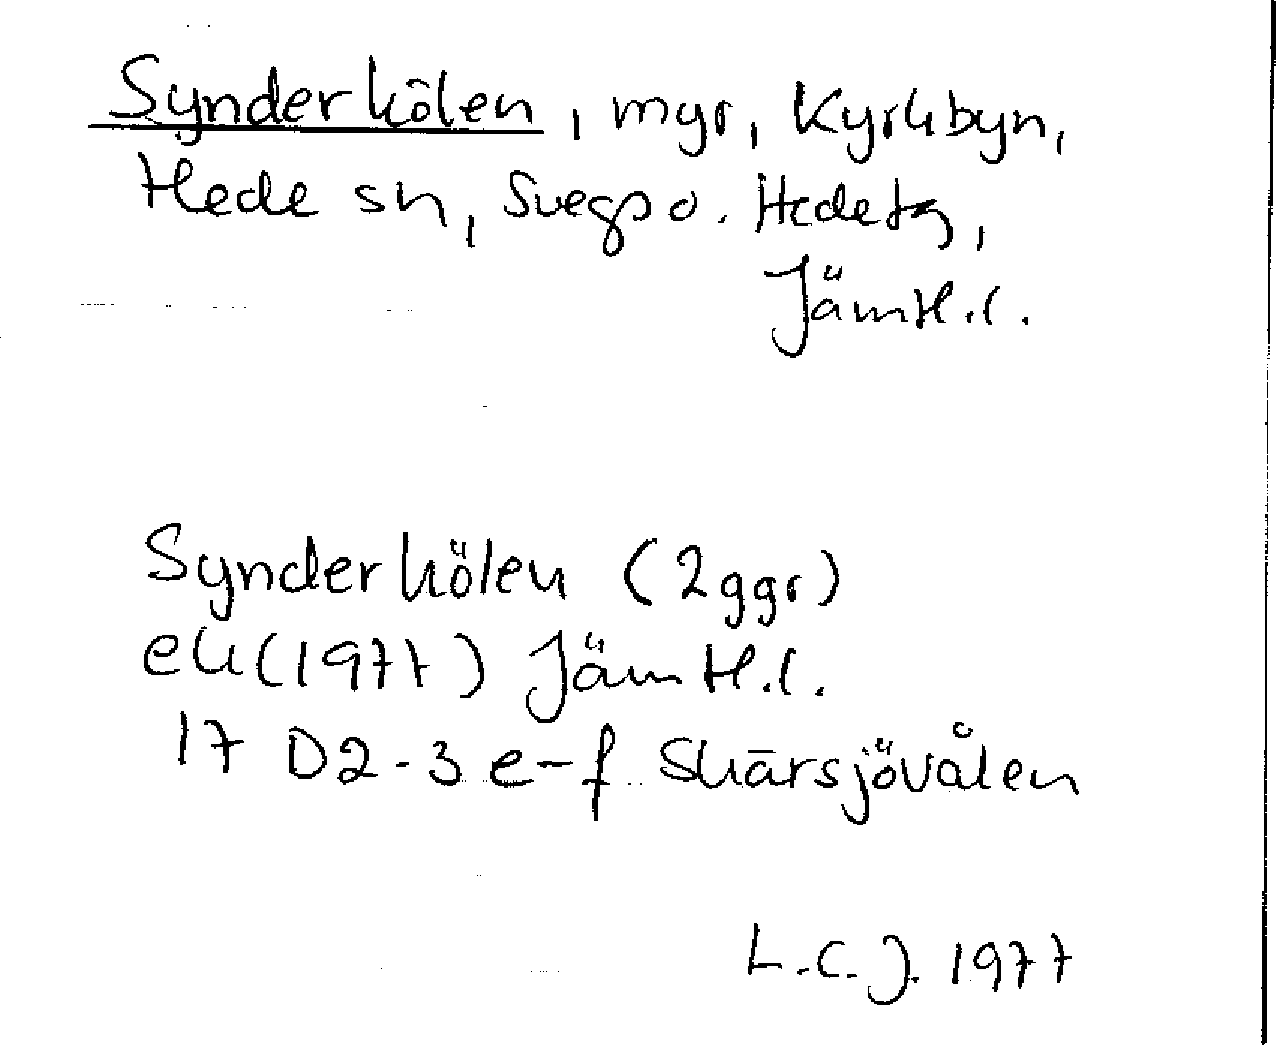 Synderkölen, myr, Kyrkbyn,
Hede sn, Svegs o. Hede tg,
Jämtl. l.
Synderkölen (2ggr)
ek (1977) Jämtl. l.
17 D2-3 e-f Skärsjövålen
L.C.J. 1977